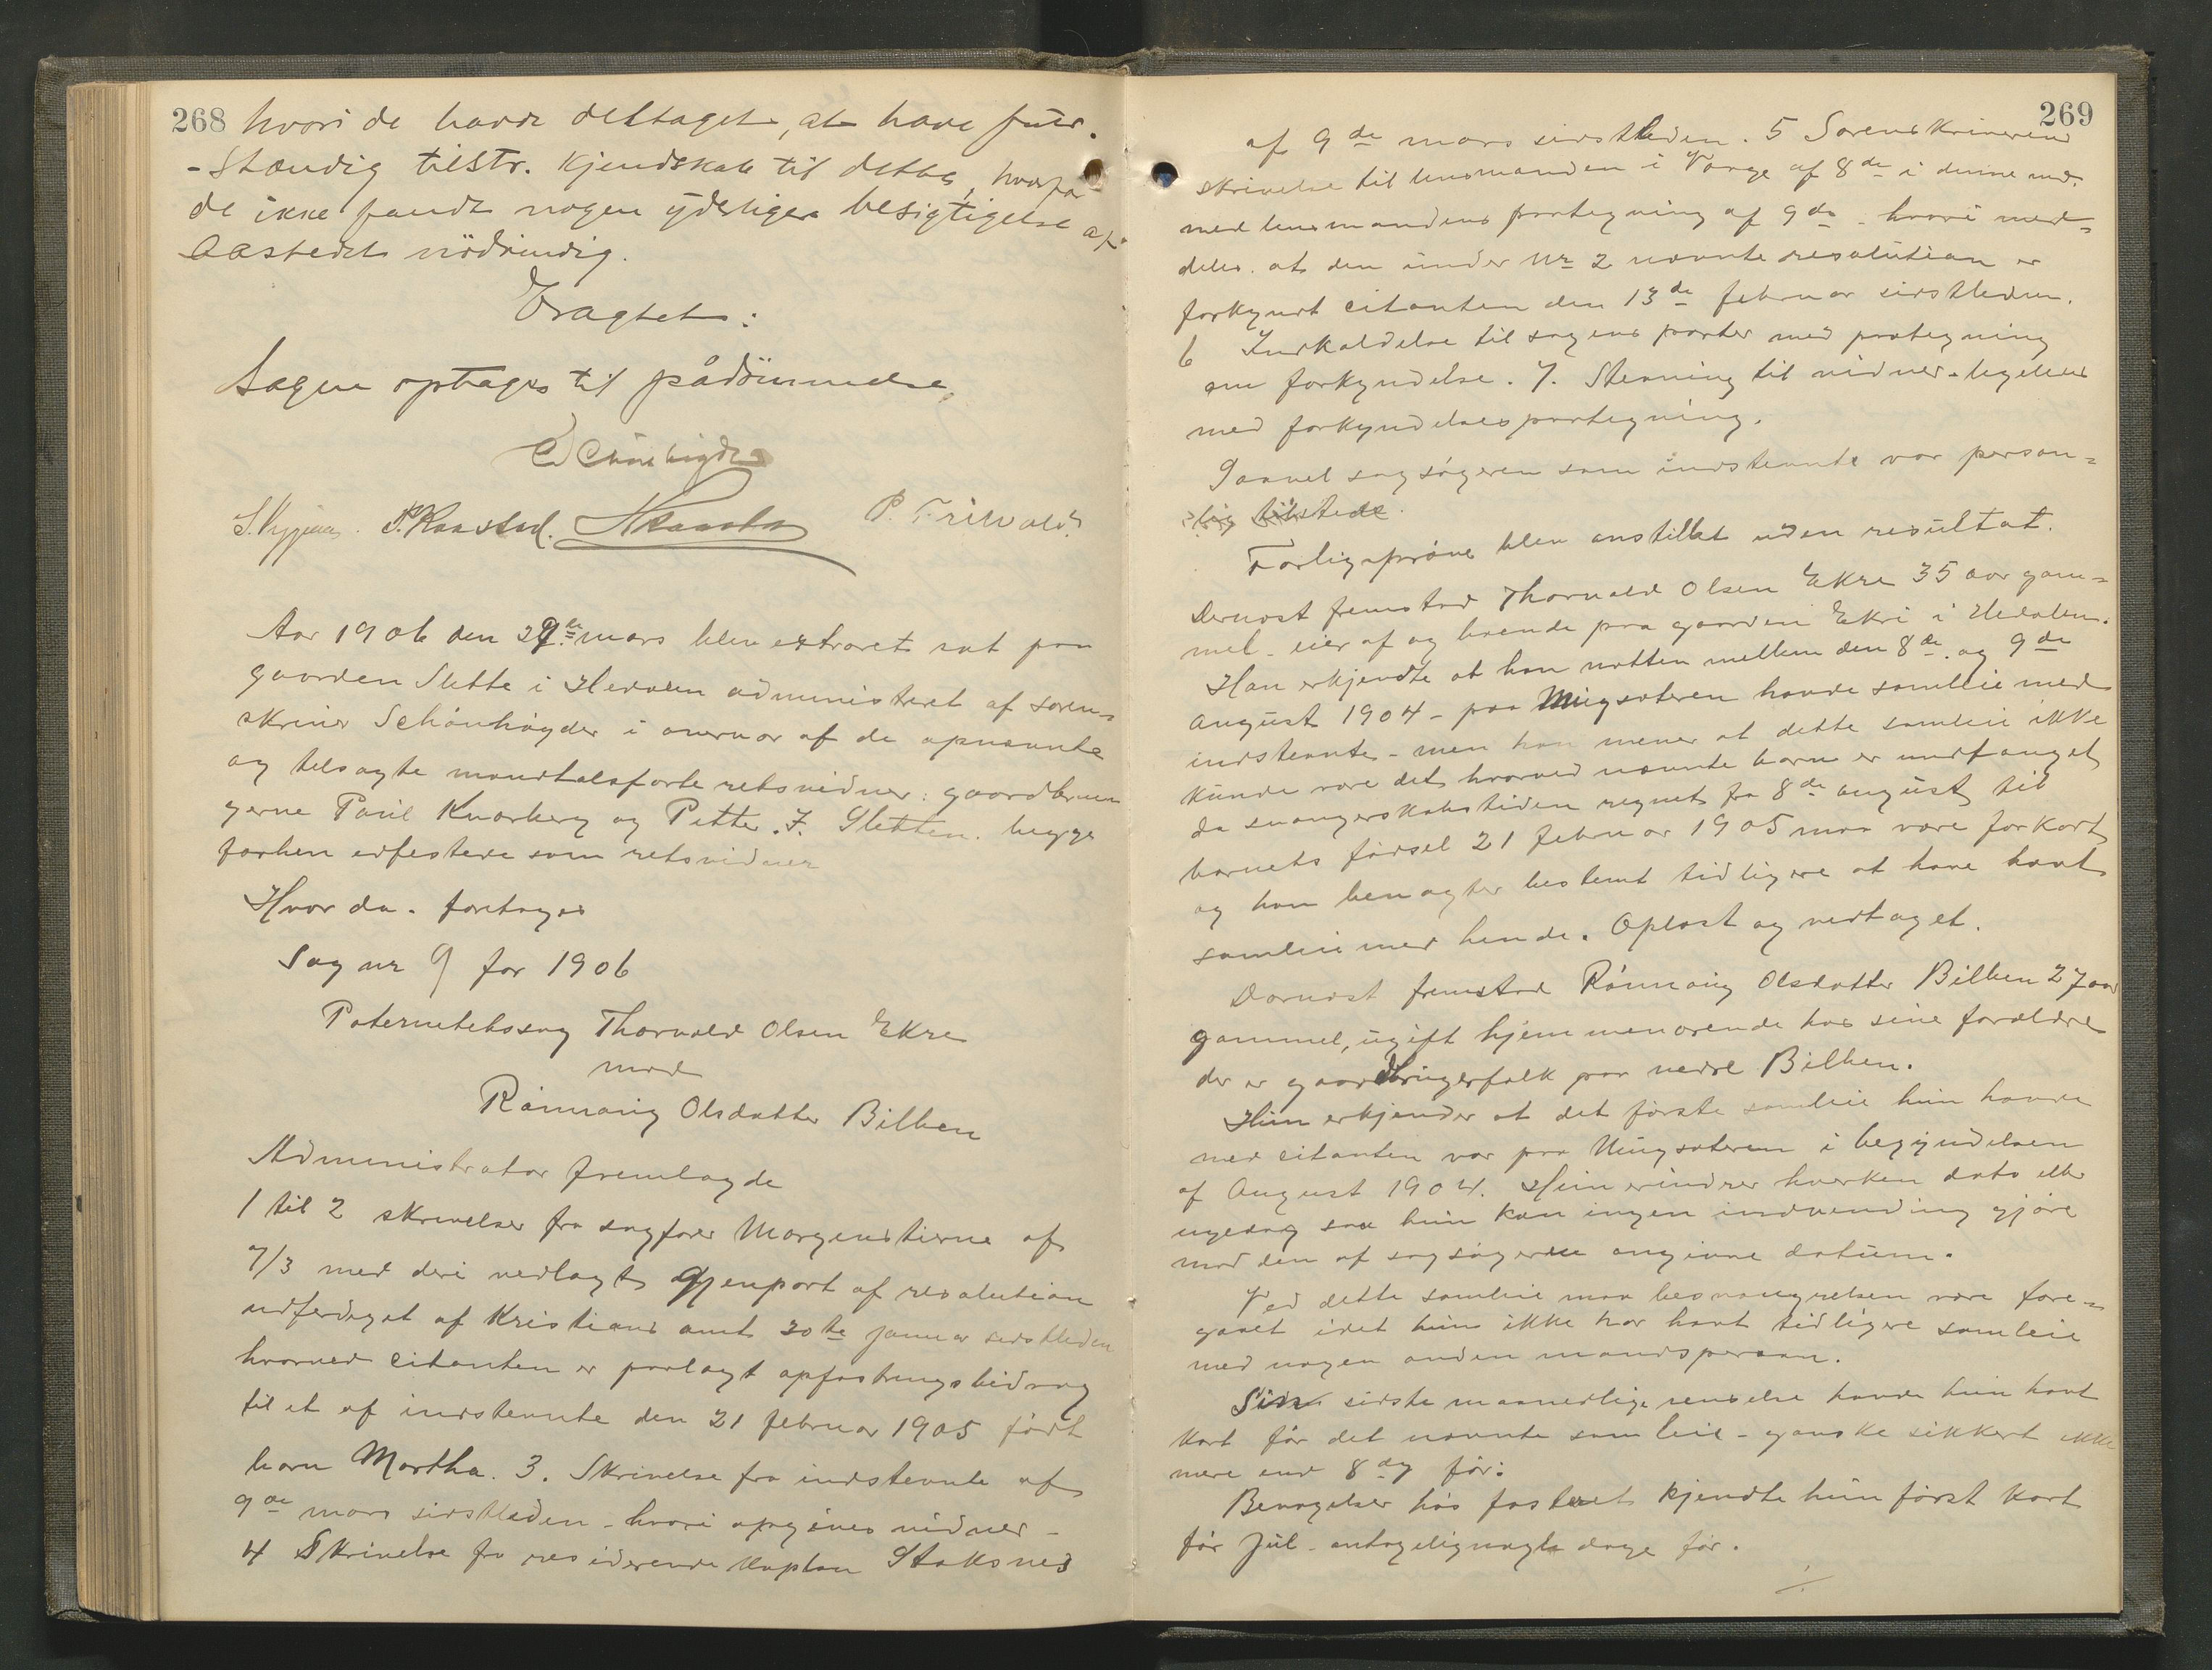 268 hvori de havde deltaget, at have fuld-
-stændig tilstr. Kjendskab til dette, hvorfor
de ikke fandt nogen yderligere besigtigelse af
aastedet nödvendig.
Eragtet:
Sagen optages til pådömmelse.
P. Kaastad. P. Frivold.
Aar 1906 den 29de mars blev extraret sat paa
gaarden Slette i Hedalen administreret af soren-
skriver Schönhöyder i overvær af de opnævnte
og tilsagte mandtalsførte retsvidner: gaardbru-
gerne Paul Knarberg og Petter J. Sletten. begge
forhen edfestede som retsvidner
Hvor da. foretoges
Sag nr 9 for 1906
Paternitetssag Thorvald Olsen Ekre
mod
Rønnaug Olsdatter Bilben
Administrator fremlagde
1 til 2 skrivelser fra sagfører Morgenstierne af
7/3 med deri vedlagt gjenpart af resolution
udferdiget af Kristians amt 30te januar sidstleden
hvorved citanten er paalagt opfostringsbidrag
til et af indstevnte den 21 februar 1905 født
barn Martha. 3. Skrivelse fra indstevnte af
9de mars sidstleden - hvori opgives vidner -
4 Skrivelse fra residerende kaplan Staksnes
269
af 9de mars sidstleden. 5 Sorenskriverens
skrivelse til lensmanden i Vang af 8de i denne md.
med lensmandens paategning af 9de - hvori med-
deles. at den under Nr 2 nævnte resolution er
forkyndt citanten den 13de februar sidstleden.
6 Indkaldelse til sagens parter med paategning
om forkyndelse. 7. Stevning til vidner - ligeledes
med forkyndelsespaategning.
Saavel sagsøgeren som indstevnte var person-
lig tilstede.
Forligsprøve blev anstillet uden resultat.
Dernæst fremstod Thorvald Olsen Ekre 35 aar gam-
mel - eier af og boende paa gaarden Ekri i Hedalen.
Han erkjendte at han natten mellem den 8de og 9de
august 1904 - paa Mugsæteren havde samleie med
indstevnte - men han mener at dette samleie ikke
kunde være det hvorved nævnte barn er undfanget
da svangerskabstiden regnet fra 8de august til
barnets fødsel 21 februar 1905 maa være for kort
og han benægter bestemt tidligere at have havt
samleie med hende. Oplæst og vedtaget.
Dernæst fremstod Rønnaug Olsdatter Bilben 27 aar
gammel, ugift hjemmeværende hos sine forældre
der er gaardbrugerfolk paa nedre Bilben.
Hun erkjender at det første samleie hun havde
med citanten var paa Mugsæteren i begyndelsen
af August 1904. Hun erindrer hverken dato eller
ugedag saa hun kan ingen indvending gjøre
mod den af sagsøgeren angivne datum.
Ved dette samleie maa besvangrelsen være fore-
gaaet idet hun ikke har havt tidligere samleie
med nogen anden mandsperson.
Sin sidste maanedlige renselse havde hun havt
kort før det nævnte samleie - ganske sikkert ikke
mere end 8 dg før.
Bevægelser hos fosteret kjendte hun først kort
før Jul - antagelig nogle dage før.
./.